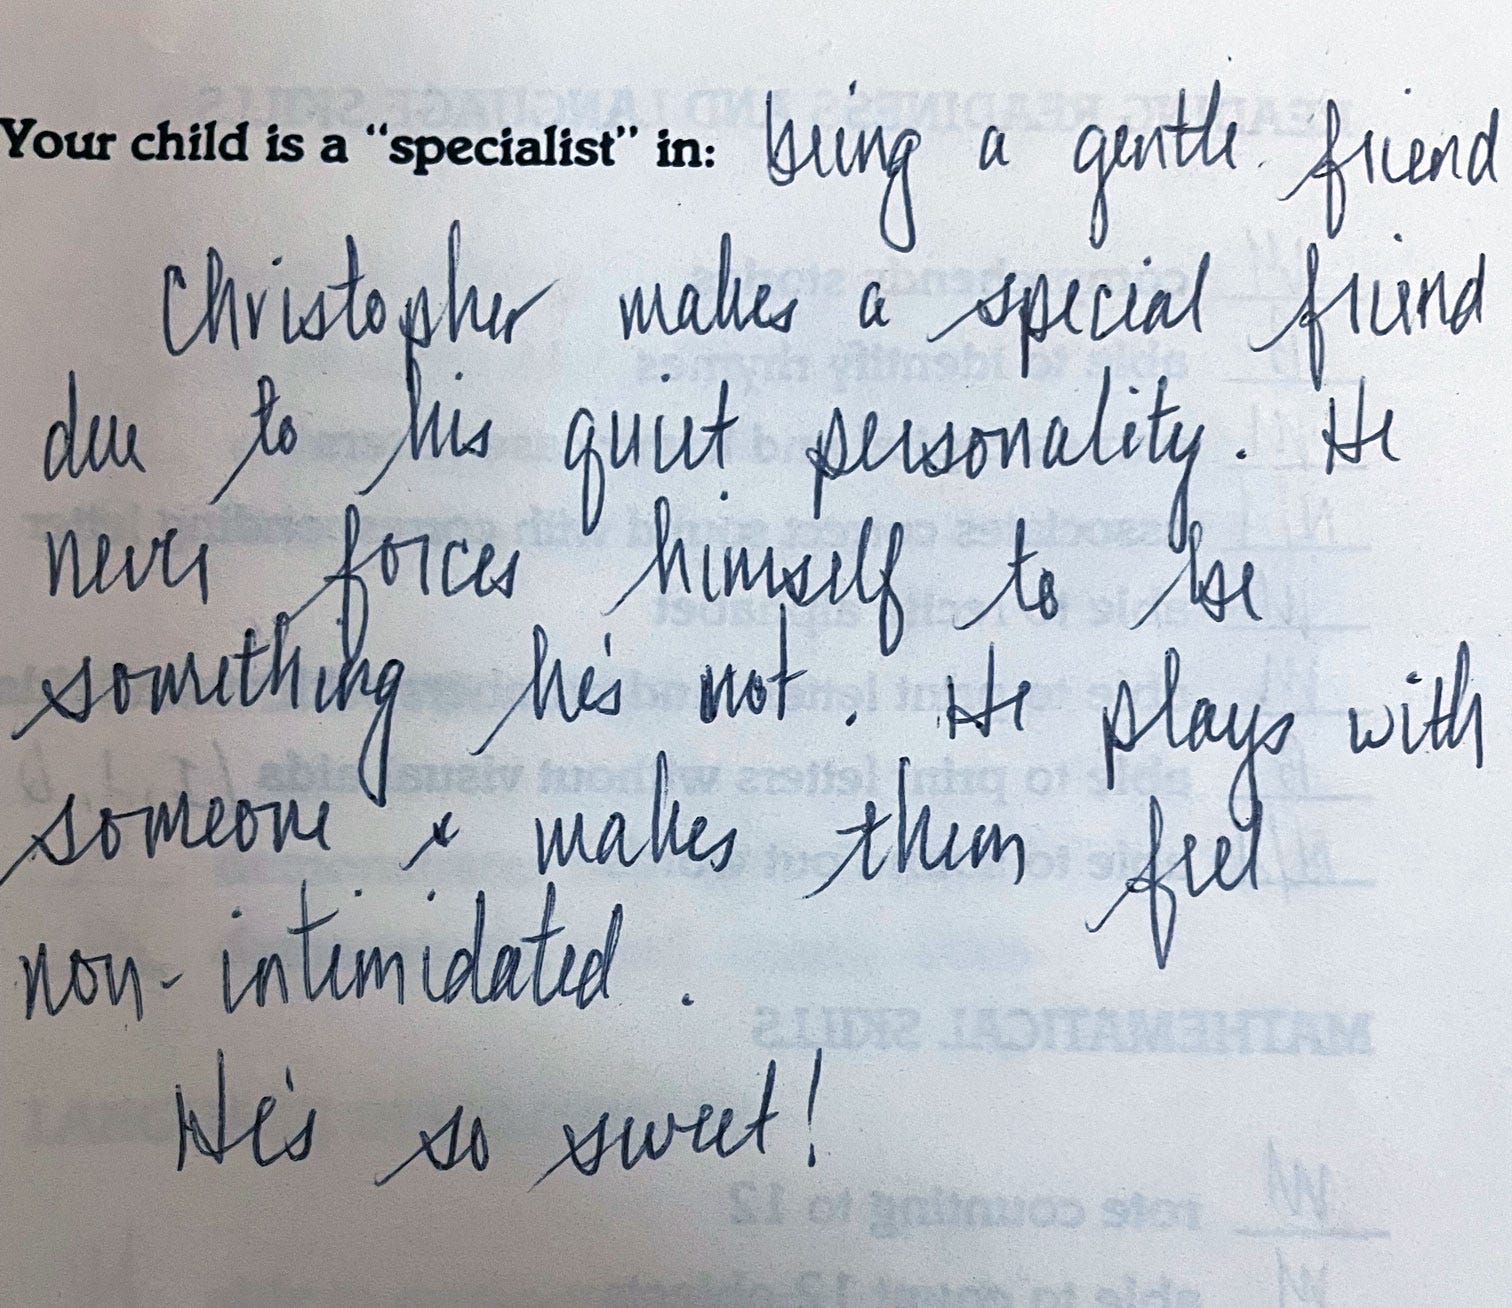 Your child is a “specialist” in: being a gentle friend
Christopher makes a special friend
due to his quiet personality. He
never forces himself to be
something he's not. He plays with
someone & makes them feel
non-intimidated.
He's so sweet!